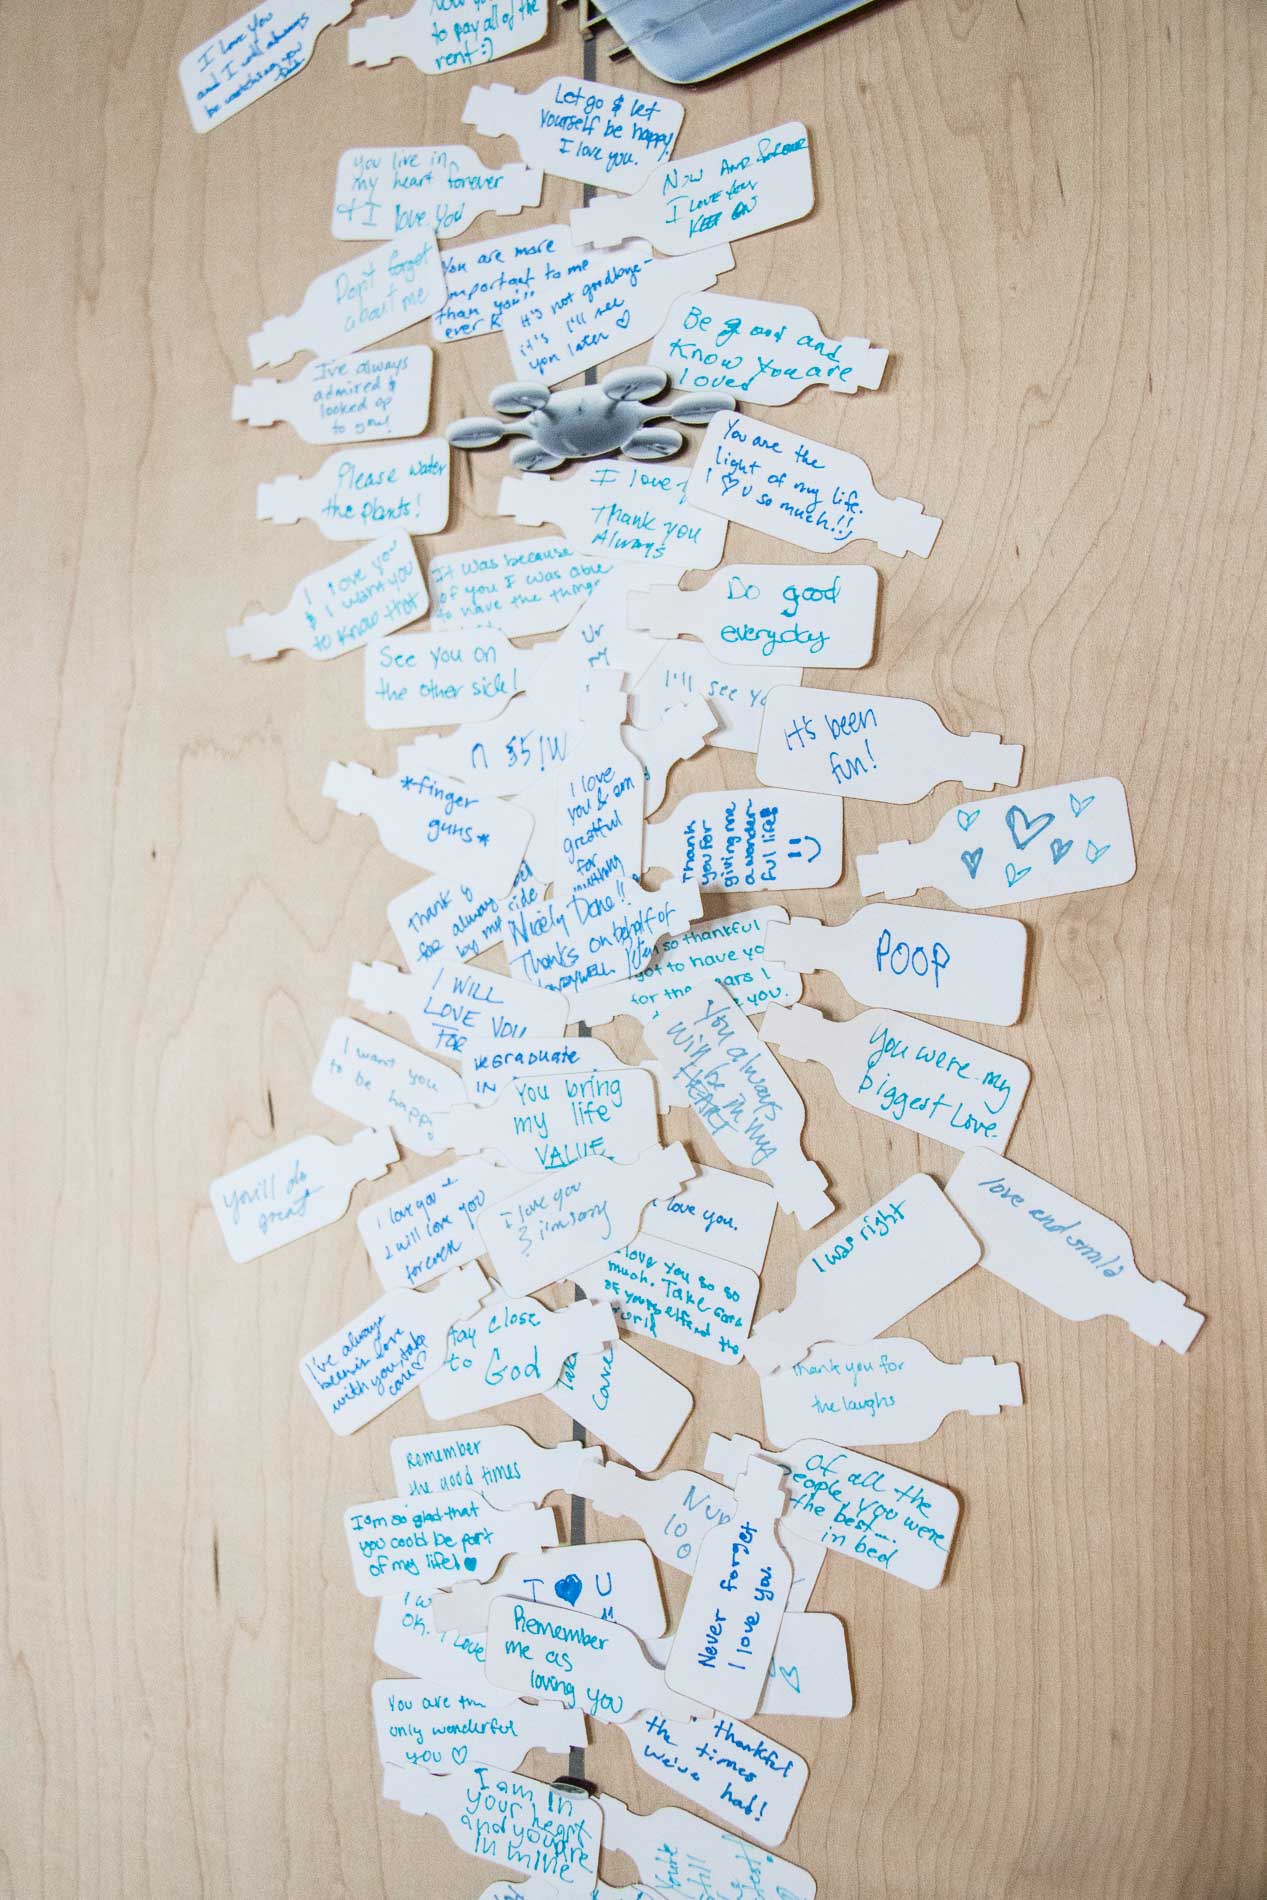 I love you
and I will always
be watching you
to pay all of the
rent :)
Let go & let
yourself be happy.
I love you.
you live in
my heart forever
& I love you
NOW AND
I LOVE YOU
KEEP ON
Don't forget
about me
You are more
important to me
than you
ever
it's not goodbye-
it's I'll see
you later ♡
Be good and
know you are
loved
I've always
admired &
looked up
to you!
Please water
the plants!
I love
Thank you
Always
You are the
light of my life.
I ♡ U so much!!
I love you
& I want you
to know that
It was because
of you I was able
to have the things
Do good
everyday
See you on
the other side!
Ur
my
I'll see yo
It's been
fun!
*finger
guns*
I love
you & am
grateful
for
Thank
you for
giving me
a wonder
ful life!
Thank
for always
by my side
Nicely Done!!
Thanks on behalf of
so thankful
got to have yo
for the years I
you.
POOP
I WILL
LOVE YOU
FOR
I want you
to be happy
GRADUATE
IN
You bring
my life
VALUE
You always
will be in my
HEART
You were my
biggest Love.
You'll do
great
I love you &
I will love you
forever
I love you
& i'm sorry
love you.
I was right
love and smile
love you so so
much. Take care
of yourself and the
world
I've always
been in love
with you, take
care ♡
tay close
to God
Care
Thank you for
the laughs
Remember
the good times
Of all the
people you were
the best....
in bed
I am so glad that
you could be part
of my life! ♥
I ♥ U
Never forget
I love you.
OK. I love
Remember
me as
loving you
You are the
only wonderful
you ♡
thankful
the times
we've had!
I am in
your heart
and you're
in mine
You're
still